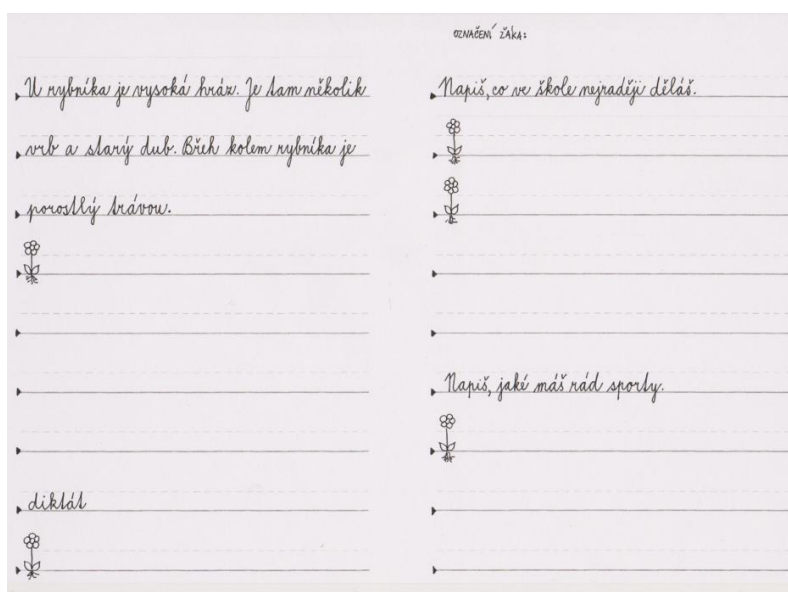 U rybníka je vysoká hráz. Je tam několik
vrb a starý dub. Břeh kolem rybníka je
porostlý trávou.
diktát
OZNAČENÍ ŽÁKA:
Napiš, co ve škole nejraději děláš.
Napiš, jaké máš rád sporty.